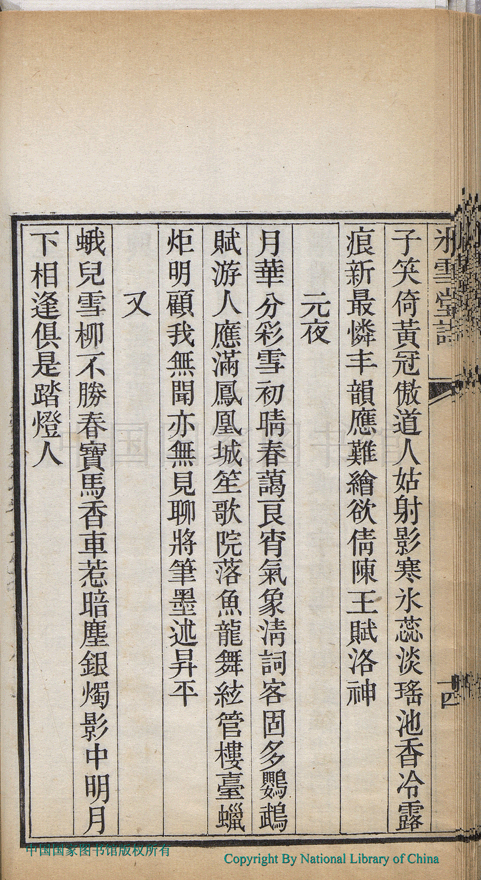 冰雪堂詩
十四
子笑倚黃冠傲道人姑射影寒氷蕊淡瑤池香冷露
痕新最憐丰韻應難繪欲倩陳王賦洛神
元夜
月華分彩雪初晴春藹良宵氣象淸詞客固多鸚鵡
賦游人應滿鳳凰城笙歌院落魚龍舞絃管樓臺蠟
炬明顧我無聞亦無見聊將筆墨述昇平
又
蛾兒雪柳不勝春寶馬香車惹暗塵銀燭影中明月
下相逢俱是踏燈人
中国国家图书馆版权所有
Copyright By National Library of China